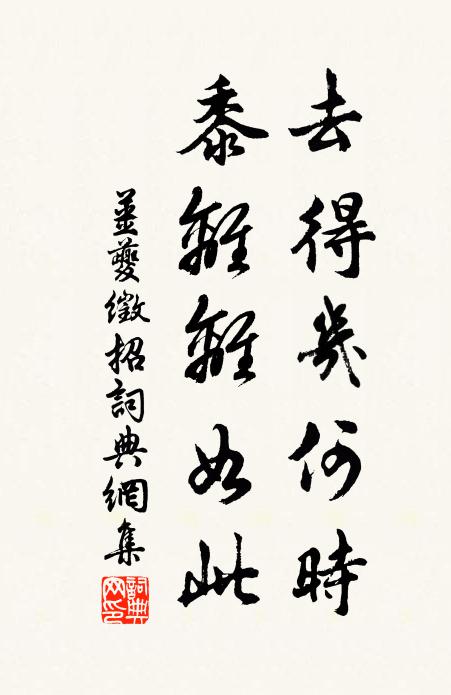 去得幾何時
黍離離如此
姜夔徵招詞典網集
詞典网印